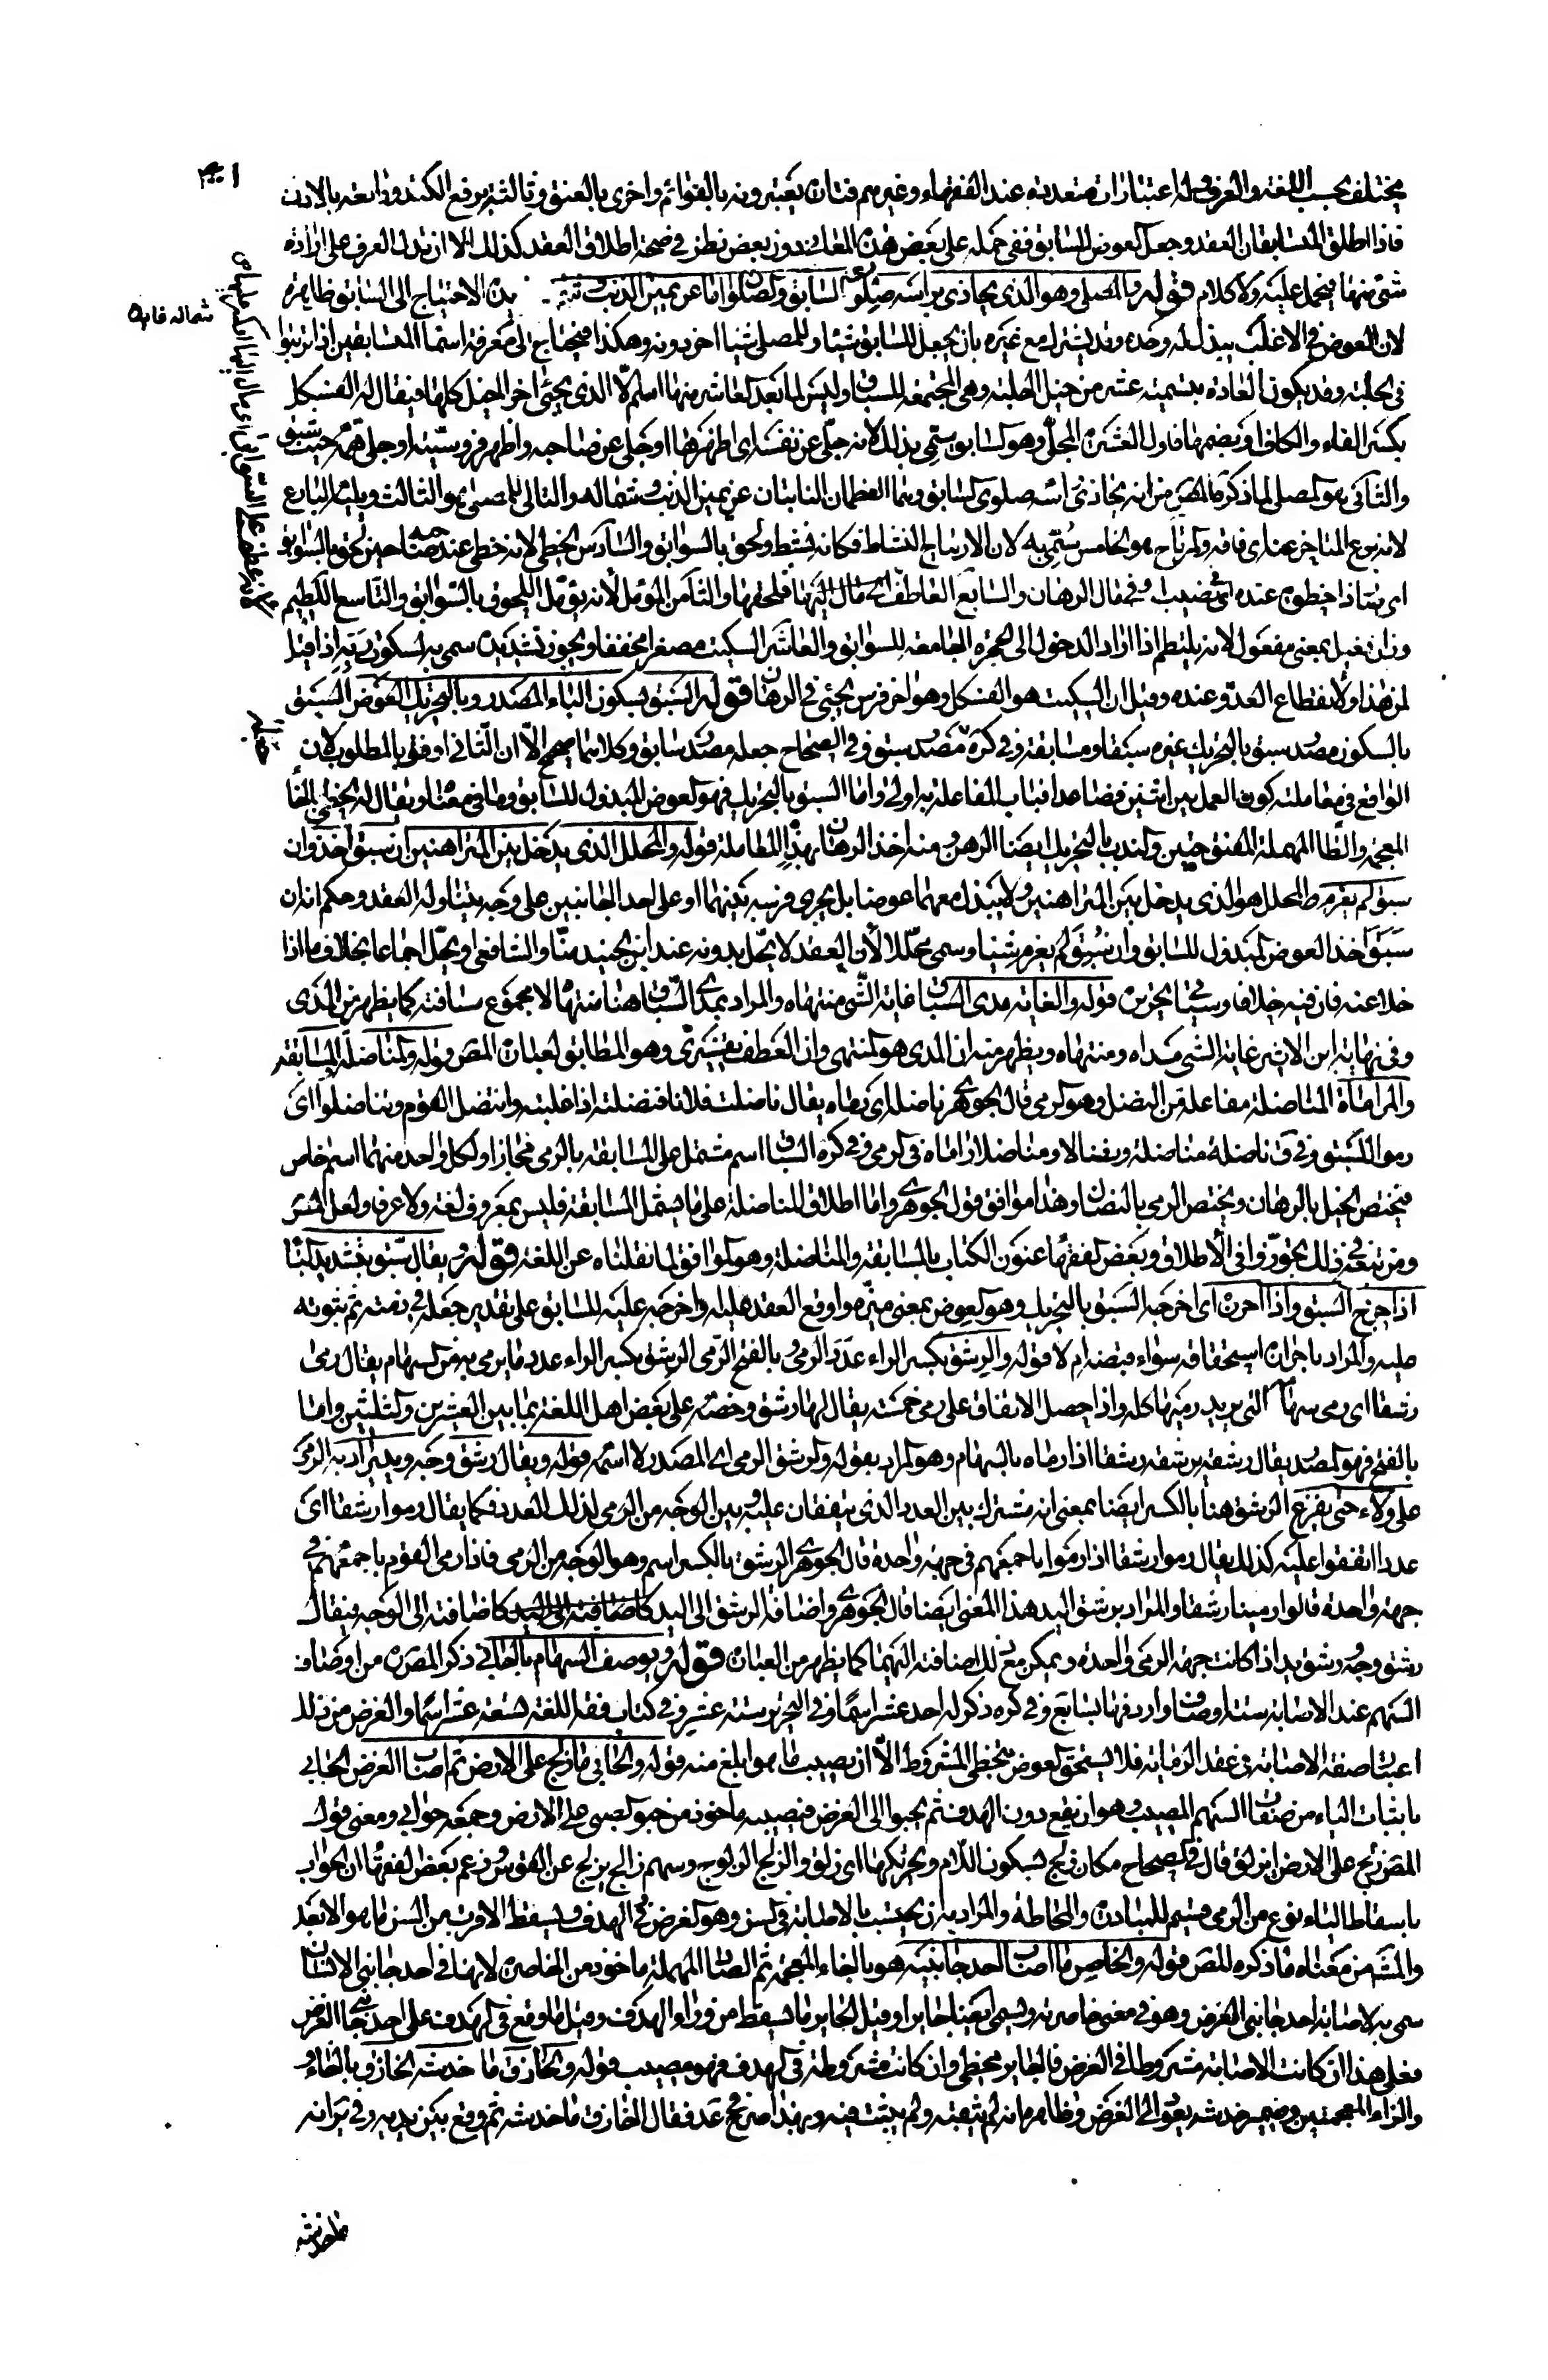 مختلف بحسب اللغة والعرف وله اعتبارات متعددة عند الفقهاء وغيرهم فتارة يعتبرونه بالقوائم واخرى بالعنق وثالثة برفع الكتد ورابعة بالاذن
فاذا اطلق المتسابقان العقد وجعل العوض للسابق ففى حمله على بعض هذه المعانى دون بعض نظر فى صحة اطلاق العقد كذلك الا ان يدل العرف على ارادة
شئ منها فيحمل عليه ولا كلام قوله والمصلى وهو الذى يحاذى براسه صلوى السابق والصلوان ما عن يمين الذنب وشماله الاحتياج الى السابق ظاهرة
لان العوض فى الاغلب يبذل له وحده وقد يشترك مع غيره بان يجعل للسابق شيئا وللمصلى شيئا اخر دونه وهكذا فيحتاج الى معرفة اسماء المتسابقين اذا ترتبوا
فى الحلبة وقد يكون العادة بتسمية عشرة من خيل الحلبة وهى المجتمعة للسباق وليس لما بعد العاشر منها اسم الا الذى يجئ اخر الخيل كلها فيقال له الفسكل
بكسر الفاء والكاف او بضمهما فاول العشرة المجلى وهو السابق سمى بذلك لانه جلى عن نفسه اى اظهرها او جلى عن صاحبه واظهر فروسيته او جلى همه حيث سبق
والثانى هو المصلى لما ذكره المص من انه يحاذى راسه صلوى السابق وهما العظمان النابتان عن يمين الذنب وشماله والتالى للمصلى هو الثالث ويليه البارع
لانه برع المتاخر عنه اى فاقه والمرتاح هو الخامس سمى به لان الارتياح النشاط فكانه نشط ولحق بالسوابق والسادس الحظى لانه حظى عند صاحبه حين لحق بالسوابق
اى صار ذا حظوة عنده اى نصيب فى مال الرهان والسابع العاطف اى مال اليها فلحقها والثامن المؤمل لانه يؤمل اللحوق بالسوابق والتاسع اللطيم
وزان فعيل بمعنى مفعول لانه يلطم اذا اراد الدخول الى الحجرة الجامعة للسوابق والعاشر السكيت مصغرا مخففا ويجوز تشديده سمى به لسكوت ربه اذا قيل
لمن هذا او لانقطاع العدو عنده وقيل ان السكيت هو الفسكل وهو اخر فرس يجئ فى الرهان قوله السبق بسكون الباء المصدر وبالتحريك العوض السبق
بالسكون مصدر سبق بالتحريك غيره سبقا ومسابقة وفى كره مصدر سبق وفى الصحاح جعله مصدر سابق وكلاهما صحيح الا ان الثانى اوفق بالمطلوب لان
الواقع فى معاملته كون العمل بين اثنين فصاعدا فباب المفاعلة به اولى واما السبق بالتحريك فهو العوض المبذول للسابق وما فى معناه ويقال له الخطر بالخاء
المعجمة والطاء المهملة المفتوحتين والندب بالتحريك ايضا الرهن ومنه اخذ الرهان لهذه المعاملة قوله والمحلل الذى يدخل بين المتراهنين ان سبق اخذ وان
سبق لم يغرم المحلل هو الذى يدخل بين المتراهنين ولا يبذل معهما عوضا بل يجرى فرسه بينهما او على احد الجانبين على وجه يتناوله العقد وحكمه انه ان
سبق اخذ العوض المبذول للسابق وان سبق لم يغرم شيئا وسمى محللا لان العقد لا يحل بدونه عند ابن الجنيد منا والشافعى ويحل اجماعا بخلاف ما اذا
خلا عنه فان فيه خلافا وسياتى تحريره قوله والغاية مدى السباق غاية الشئ منتهاه والمراد بمدى السباق هنا منتهاه لا مجموع مسافته كما يظهر من المدى
وفى نهاية ابن الاثير غاية الشئ مداه ومنتهاه ويظهر منه ان المدى هو المنتهى وان العطف تفسيرى وهو المطابق لعبارة المص قوله والمناضلة المسابقة
والمراماة المناضلة مفاعلة من النضل وهو الرمى قال الجوهرى ناضله اى راماه يقال ناضلت فلانا فنضلته اذا غلبته وانتضل القوم وتناضلوا اى
رموا للسبق وفى ق ناضله مناضلة ونضالا ومناضلا راماه فى الرمى وفى كره السباق اسم مشتمل على المسابقة بالرمى مجازا ولكل واحد منهما اسم خاص
فيختص الخيل بالرهان ويختص الرمى بالنضال وهذا موافق قول الجوهرى واما اطلاق المناضلة على ما يشمل المسابقة فليس بمعروف لغة ولا عرفا ولعل المص
ومن تبعه فى ذلك تجوزوا فى الاطلاق وبعض الفقهاء عنون الكتاب بالمسابقة والمناضلة وهو الموافق لما نقلناه عن اللغة قوله ويقال سبق بتشديد الباء
اذا اخرج السبق واذا احرزه اى اخرجه السبق بالتحريك وهو العوض بمعنى ميزه واوقع العقد عليه واخرجه عليه للسابق على تقدير جعله فى ذمته ثم ثبوته
عليه والمراد باحرازه استحقاقه سواء قبضه ام لا قوله والرشق بكسر الراء عدد الرمى وبالفتح الرمى الرشق بكسر الراء عدد ما يرمى به من السهام يقال رمى
رشقا اى رمى سهامه التى يريد رميها كله واذا حصل الاتفاق على رمى خمسة يقال لها رشق وخصه على بعض اهل اللغة بما بين العشرين والثلثين واما
بالفتح فهو المصدر يقال رشقه يرشقه رشقا اذا رماه بالسهام وهو المراد بقوله والرشق الرمى اى المصدر لا اسمه قوله ويقال رشق وجه ويد يراد به الرمى
على ولاء حتى يفرغ الرشق هنا بالكسر ايضا بمعنى انه مشترك بين العدد الذى يتفقان عليه وبين الوجه من الرمى لذلك العدد فكما يقال رموا رشقا اى
عددا اتفقوا عليه كذلك يقال رموا رشقا اذا رموا باجمعهم فى جهة واحدة قال الجوهرى الرشق بالكسر اسم وهو الوجه من الرمى فاذا رمى القوم باجمعهم فى
جهة واحدة قالوا رمينا رشقا والمراد برشق اليد هذا المعنى ايضا قال الجوهرى واضافة الرشق الى اليد كاضافته الى اليد كاضافته الى الوجه فيقال
رشق وجه ورشق يد اذا كانت جهة الرمى واحدة ويمكن مع ذلك اضافته اليهما كما يظهر من العبارة قوله ويوصف السهام بالحابى ذكر المص من اوصاف
السهم عند الاصابة ستة اوصاف واردفها بسابع وفى كره ذكر له احد عشر اسما وفى التحرير ستة عشر وفى كتاب فقه اللغة تسعة عشر اسما والغرض من ذلك
اعتبار صفة الاصابة فى عقد الرماية فلا يستحق العوض بتخطى المشروط الا ان يصيب بما هو ابلغ منه قوله والحابى ما زلج على الارض ثم اصاب الغرض الحابى
باثبات الياء من صفات السهم المصيب وهو ان يقع دون الهدف ثم يحبوا الى الغرض فيصيبه ماخوذ من حبو الصبى على الارض وجمعه حوابى ومعنى قول
المص زلج على الارض انزلق قال فى الصحاح مكان زلج بسكون اللام وتحريكها اى زلق والزلج الزلوج وسهم زالج يزلج عن القوس وزعم بعض الفقهاء ان الحواب
باسقاط الياء نوع من الرمى قسيم للمبادرة والمحاطة والمراد به ان يحتسب بالاصابة فى الشن وهو الغرض فى الهدف ويسقط الاقرب من الشن ما هو الابعد
والمشهور من معناه ما ذكره المص قوله والخاصر ما اصاب احد جانبيه هو بالخاء المعجمة ثم الصاد المهملة ماخوذ من الخاصرة لانها فى احد جانبى الانسان
سمى به لاصابة احد جانبى الغرض وهو فى معنى خاصرته ويسمى ايضا جابرا وقيل الجابر ما يسقط من وراء الهدف وقيل ما وقع فى الهدف على احد جانبى الغرض
فعلى هذا ان كانت الاصابة مشروطة فى الغرض فالجابر مخطئ وان كانت مشروطة فى الهدف فهو مصيب قوله والخازق ما خدشه الخازق بالخاء
والزاء المعجمتين وضمير خدشه يعود الى الغرض وظاهره انه لم يثقبه ولم يثبت فيه وبهذا صرح فى عد فقال الخازق ما خدشه ثم وقع بين يديه وفى ير انه
ما خدشه